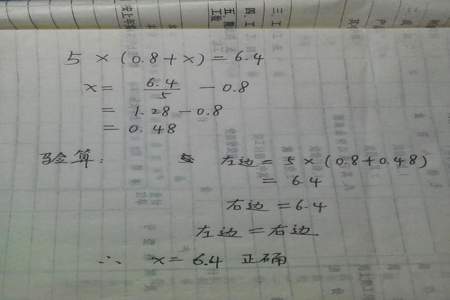 5 × (0.8 + x) = 6.4
x = 6.4/5 - 0.8
= 1.28 - 0.8
= 0.48
验算: 左边 = 5 × (0.8 + 0.48)
= 6.4
右边 = 6.4
左边 = 右边
∴ x = 6.4 正确